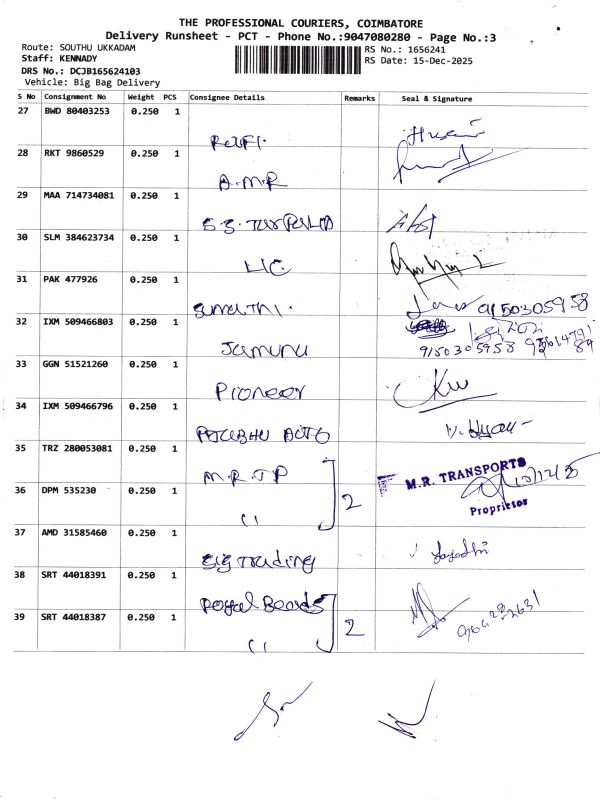 THE PROFESSIONAL COURIERS, COIMBATORE
Delivery Runsheet - PCT - Phone No.:9047080280 - Page No.:3
Route: SOUTHU UKKADAM
RS No.: 1656241
Staff: KENNADY
RS Date: 15-Dec-2025
DRS No.: DCJB165624103
Vehicle: Big Bag Delivery
S No Consignment No Weight PCS Consignee Details Remarks Seal & Signature
27 BWD 80403253 0.250 1
Rafi. Husain
28 RKT 9860529 0.250 1
A.M.R
29 MAA 714734081 0.250 1
S.S.
30 SLM 384623734 0.250 1
LIC
31 PAK 477926 0.250 1
Sumathi. 9150305958
32 IXM 509466803 0.250 1
Jamunu 9150305958
33 GGN 51521260 0.250 1
Pioneer
34 IXM 509466796 0.250 1
AUTO
35 TRZ 280053081 0.250 1
M.R.TP M.R. TRANSPORTS
36 DPM 535230 0.250 1
2
Proprietor
37 AMD 31585460 0.250 1
Trading
38 SRT 44018391 0.250 1
Royal Beards
39 SRT 44018387 0.250 1
2